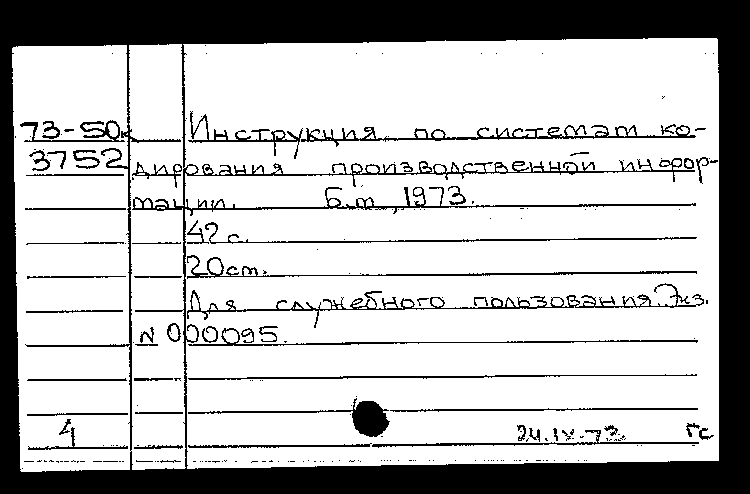 73-50к Инструкция по системам ко-
3752 дирования производственной инфор-
мации. Б.м., 1973.
42 с.
20 см.
Для служебного пользования. Экз.
N 000095.
4 24.IV.73 Гс